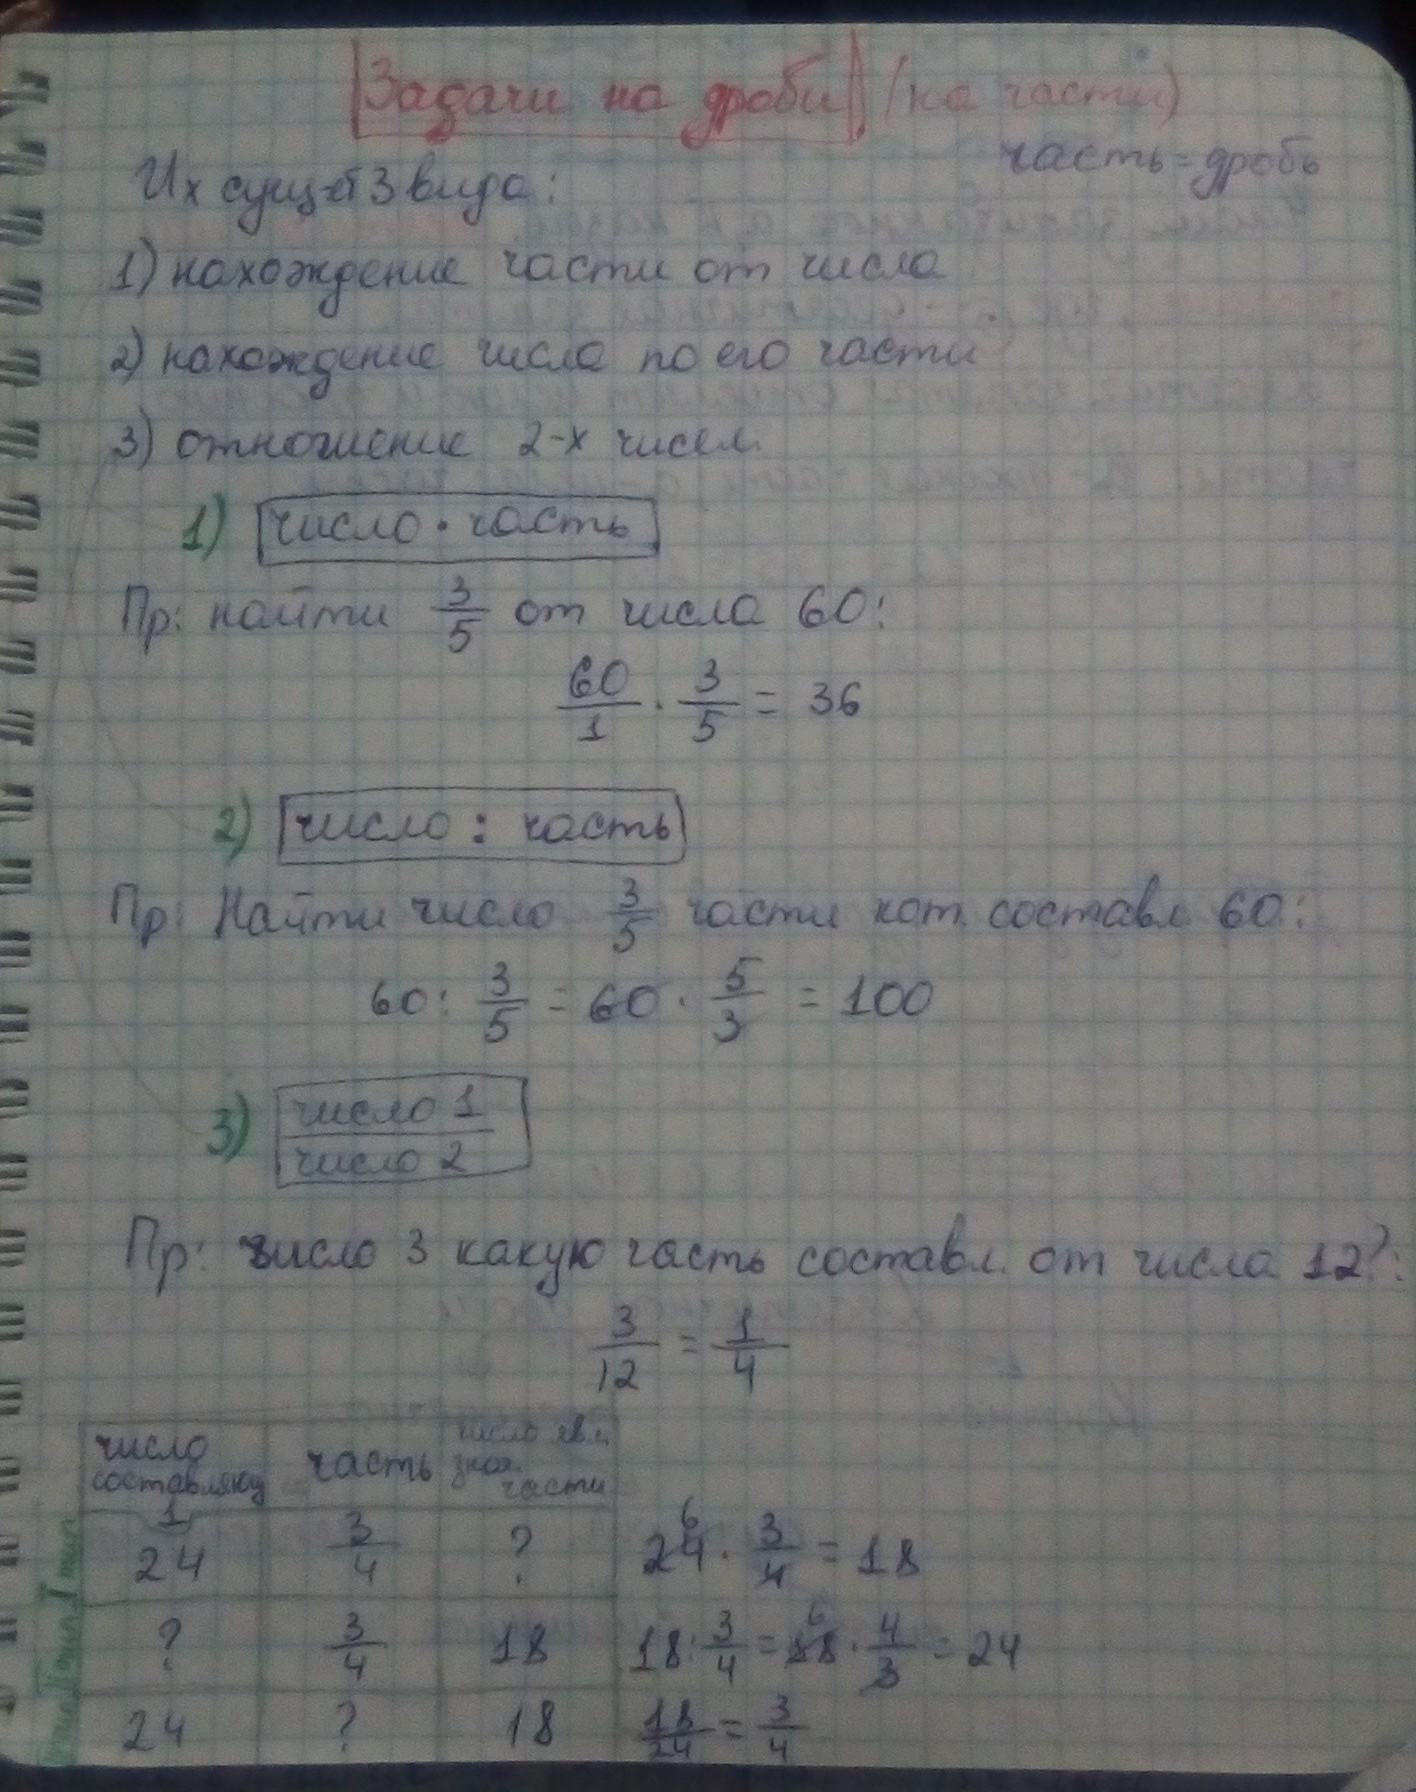 Задачи на дроби (на части)
часть = дробь
Их сущ-ет 3 вида:
1) нахождение части от числа
2) нахождение числа по его части
3) отношение 2-х чисел
1) число · часть
Пр: найти 3/5 от числа 60:
60/1 · 3/5 = 36
2) число : часть
Пр: Найти число 3/5 части кот. составл. 60:
60 : 3/5 = 60 · 5/3 = 100
3) число 1 / число 2
Пр: число 3 какую часть составл. от числа 12?:
3/12 = 1/4
число составляющ часть число явл. знач. части
1
24 3/4 ? 24 6 · 3/4 = 18
? 3/4 18 18 : 3/4 = 18 6 · 4/3 = 24
24 ? 18 18/24 = 3/4
I тип
II тип